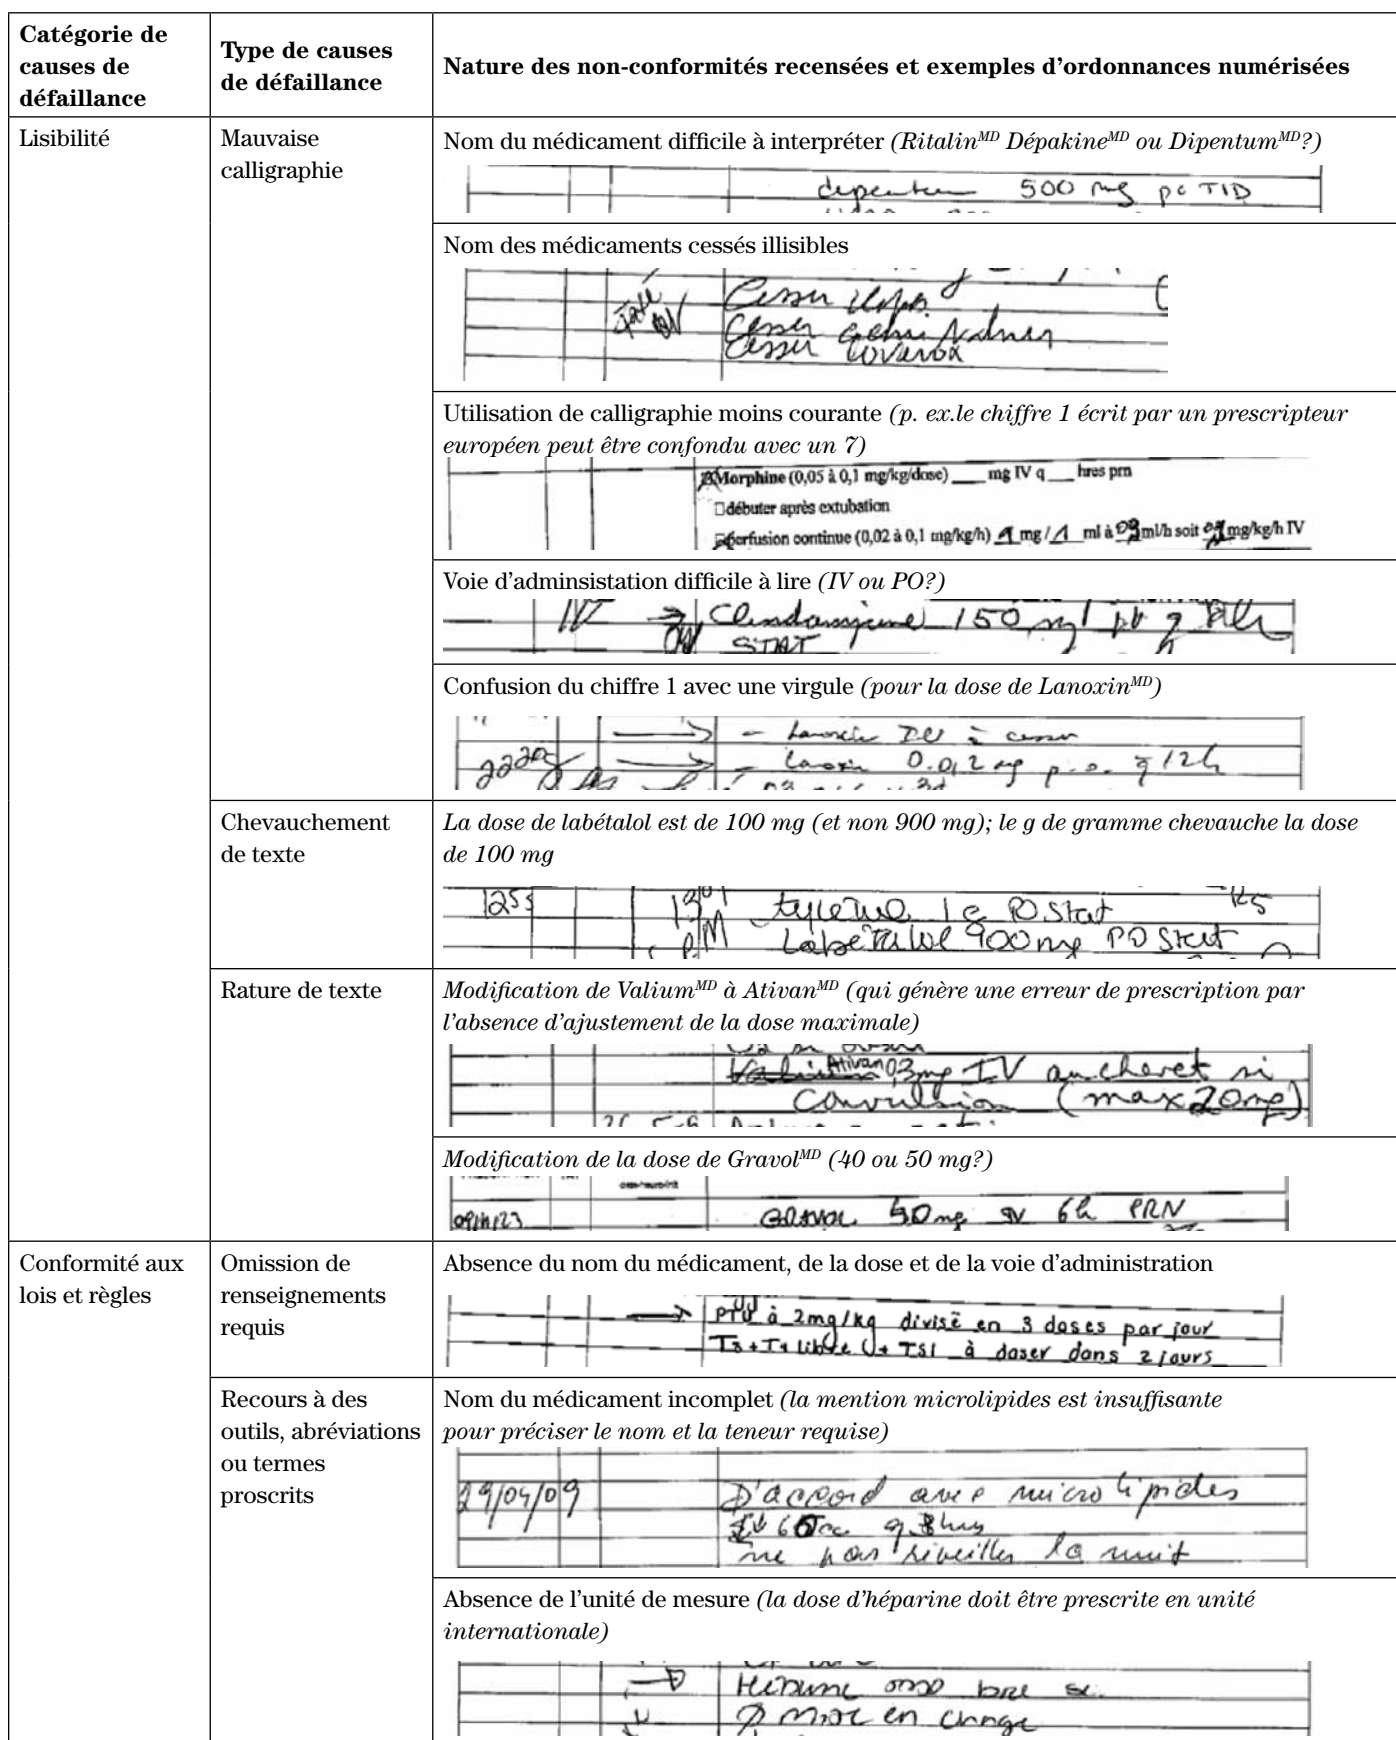 Catégorie de causes de défaillance
Type de causes de défaillance
Nature des non-conformités recensées et exemples d'ordonnances numérisées
Lisibilité
Mauvaise calligraphie
Nom du médicament difficile à interpréter (Ritalin^MD Dépakine^MD ou Dipentum^MD?)
500 mg pc TID
Nom des médicaments cessés illisibles
Cesser
Cesser
Cesser
Utilisation de calligraphie moins courante (p. ex.le chiffre 1 écrit par un prescripteur
européen peut être confondu avec un 7)
Morphine (0,05 à 0,1 mg/kg/dose) ___ mg IV q ___ hres prn
débuter après extubation
perfusion continue (0,02 à 0,1 mg/kg/h) 1 mg / 1 ml à ml/h soit mg/kg/h IV
Voie d'adminsistation difficile à lire (IV ou PO?)
Clindamycine 150 mg
STAT
Confusion du chiffre 1 avec une virgule (pour la dose de Lanoxin^MD)
à cesser
2220
lanoxin 0.012 mg p.o. q 12h
Chevauchement de texte
La dose de labétalol est de 100 mg (et non 900 mg); le g de gramme chevauche la dose
de 100 mg
1255
tylenol 1 g PO Stat
PM Labetalol 900 mg PO Stat
Rature de texte
Modification de Valium^MD à Ativan^MD (qui génère une erreur de prescription par
l'absence d'ajustement de la dose maximale)
Valium Ativan 0,3 mg IV au chevet si
convulsion (max 20 mg)
Modification de la dose de Gravol^MD (40 ou 50 mg?)
GRAVOL 50 mg 6h PRN
Conformité aux lois et règles
Omission de renseignements requis
Absence du nom du médicament, de la dose et de la voie d'administration
PTU à 2mg/kg divisé en 3 doses par jour
à doser dans 2 jours
Recours à des outils, abréviations ou termes proscrits
Nom du médicament incomplet (la mention microlipides est insuffisante
pour préciser le nom et la teneur requise)
29/04/09
D'accord avec microlipides
ne pas réveiller la nuit
Absence de l'unité de mesure (la dose d'héparine doit être prescrite en unité
internationale)
en charge